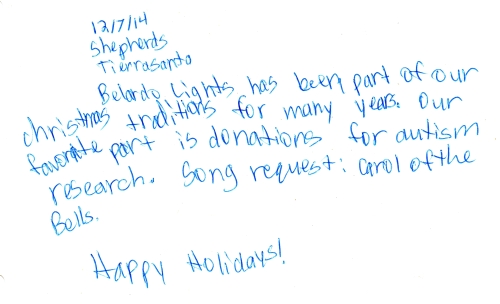 12/7/14
Shepherds
Tierrasanto
Belardo Lights has been part of our
christmas traditions for many years. Our
favorate part is donations for autism
research. Song request: Carol of the
Bells.
Happy Holidays!